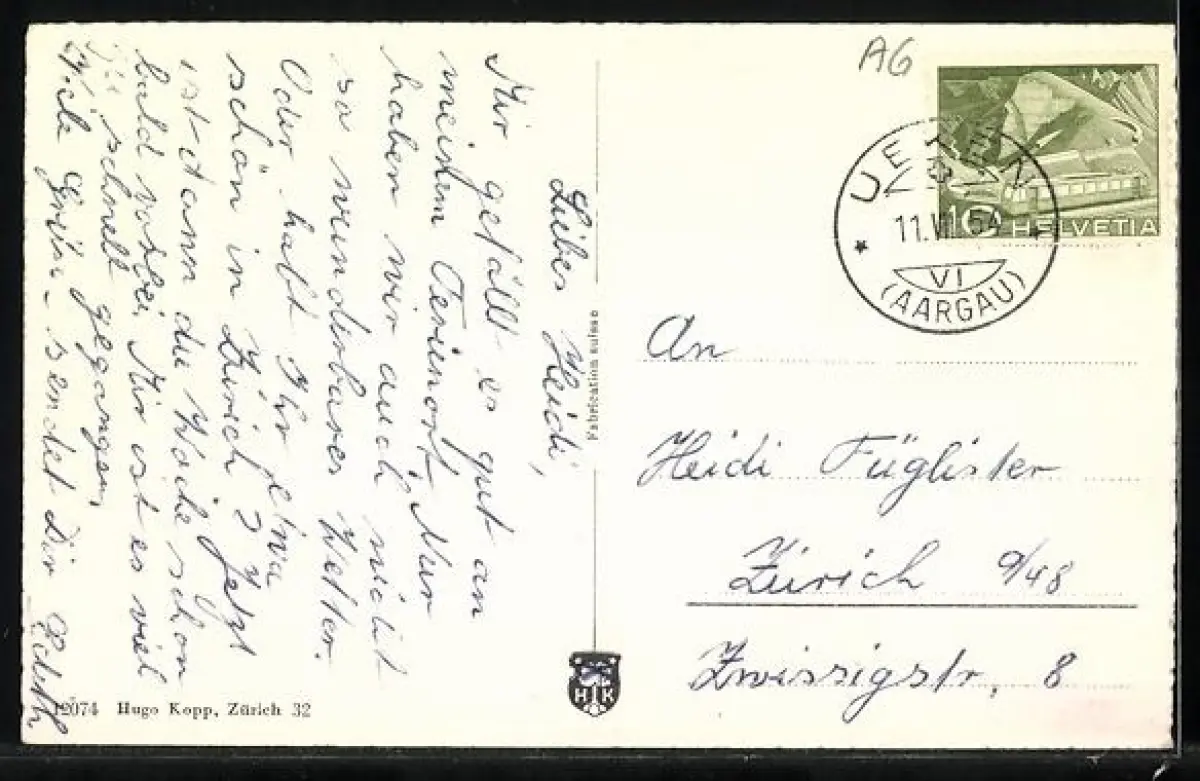 Liebes Heidi,
Mir gefällt es gut an
meinem Ferienort. Nur
haben wir auch nicht
so wunderbares Wetter.
Oder habt Ihr etwa
schön in Zürich? Jetzt
ist dann die Woche schon
bald vorbei. Mir ist es viel
zu schnell gegangen.
Viele Grüsse sendet Dir Edith
12074 Hugo Kopp, Zürich 32
Fabrication suisse
HK
AG
10 HELVETIA
11.VI.54
VI
(AARGAU)
An
Heidi Füglister
Zürich 9/48
Zwissigstr. 8